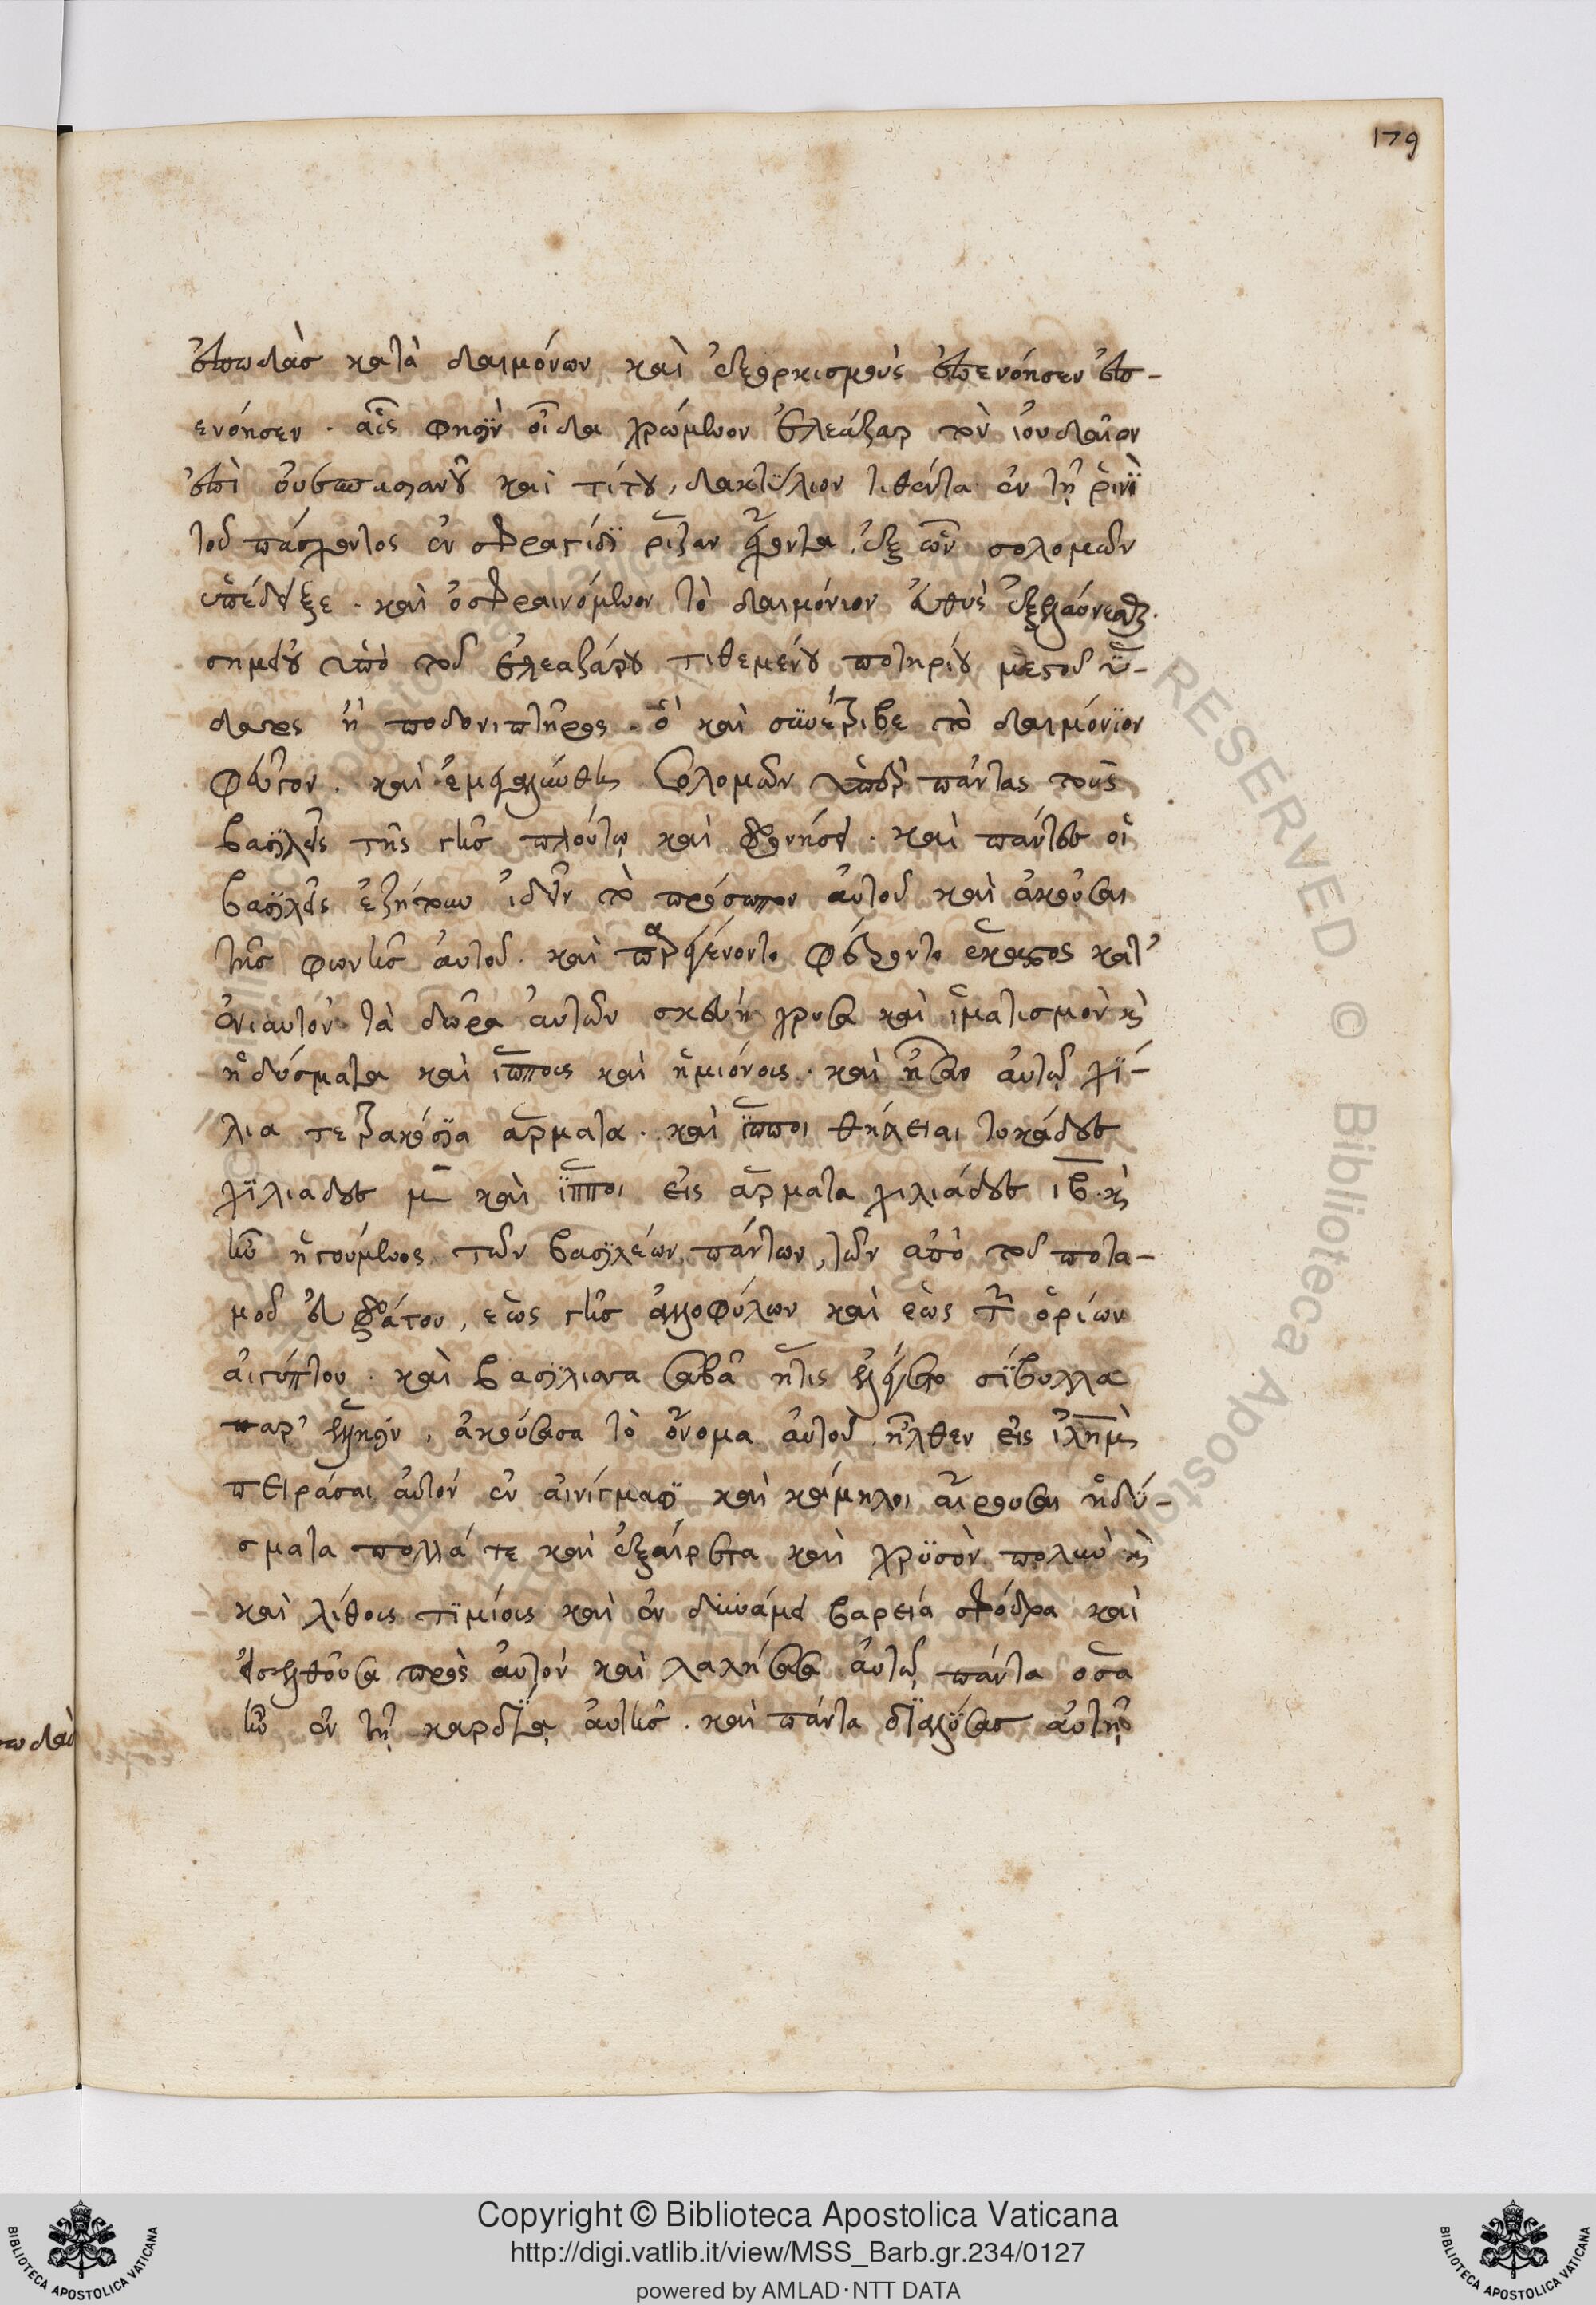 179
ἐπωδὰσ κατὰ δαιμόνων καὶ ἐξορκισμοὺς ἐπενόησεν ἐπ-
ενόησεν · αἷς φησὶν οἶδα χρώμενον ἐλεάζαρ τὸν ἰουδαῖον
ἐπὶ οὐεσπασιανοῦ καὶ τίτου, δακτύλιον τιθέντα ἐν τῇ ῥινὶ
τοῦ πάσχοντος ἐν σφραγίδι ῥίζαν ἔχοντα, ἐξ ὧν σολομῶν
ὑπέδειξε · καὶ ὀσφραινόμενον τὸ δαιμόνιον εὐθὺς ἐξηλαύνετο.
σημείου ὑπὸ τοῦ ἐλεαζάρου τιθεμένου ποτηρίου μεστοῦ ὕ-
δατος ἢ ποδονιπτῆρος · ὃ καὶ συνέτριβε τὸ δαιμόνιον
φεῦγον. καὶ ἐμεγαλύνθη Σολομῶν ὑπὲρ πάντας τοὺς
βασιλεῖς τῆς γῆσ πλούτῳ καὶ φρονήσει · καὶ πάντες οἱ
βασιλεῖς ἐζήτουν ἰδεῖν τὸ πρόσωπον αὐτοῦ καὶ ἀκοῦσαι
τῆσ φωνῆσ αὐτοῦ. καὶ παρεγένοντο φέροντο ἕκαστος κατ'
ἐνιαυτὸν τὰ δῶρα αὐτῶν σκεύη χρυσᾶ καὶ ἱματισμὸν κὶ
ἡδύσματα καὶ ἵππους καὶ ἡμιόνους · καὶ ἦσαν αὐτῷ χί-
λια τετρακόσια ἅρματα · καὶ ἵπποι θήλειαι τοκάδες
χιλιάδες μ̅ καὶ ἵπποι εἰς ἅρματα χιλιάδες ι̅β̅ · κὶ
ἦν ἡγούμενος τῶν βασιλέων πάντων, τῶν ἀπὸ τοῦ ποτα-
μοῦ εὐφράτου, ἕως γῆσ ἀλλοφύλων καὶ ἕως τῶν ὁρίων
αἰγύπτου · καὶ βασίλισσα σαβᾶ ἥτις ἐλέγετο σίβυλλα
παρ' ἕλλησιν, ἀκούσασα τὸ ὄνομα αὐτοῦ, ἦλθεν εἰς ἰλη̅μ̅
πειράσαι αὐτὸν ἐν αἰνίγμασι καὶ κάμηλοι αἴρουσαι ἡδύ-
σματα πολλά τε καὶ ἐξαίρετα καὶ χρυσὸν πολὺν κὶ
καὶ λίθους τιμίους καὶ ἐν δυνάμει βαρεῖα σφόδρα καὶ
εἰσελθοῦσα πρὸς αὐτὸν καὶ λαλήσασα αὐτῷ πάντα ὅσα
ἦν ἐν τῇ καρδίᾳ αὐτῆσ · καὶ πάντα διαλύσασ αὐτῇ
Copyright © Biblioteca Apostolica Vaticana
http://digi.vatlib.it/view/MSS_Barb.gr.234/0127
powered by AMLAD·NTT DATA